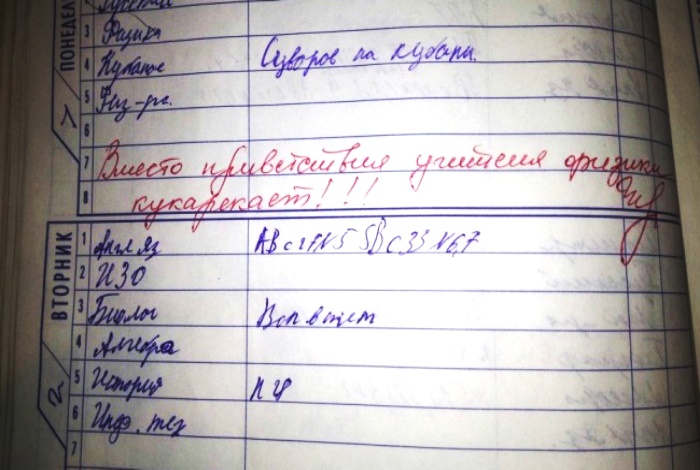 ПОНЕДЕЛ
3 Физика
4 Кубанов Суворов на Кубани.
5 Физ-ра.
6
7 Вместо приветствия учителя физики
8 кукарекает!!!
ВТОРНИК
1 Англ яз
2 ИЗО
3 Биолог
4 Алгебра
5 История п 4
6 Инф. тех
7
2